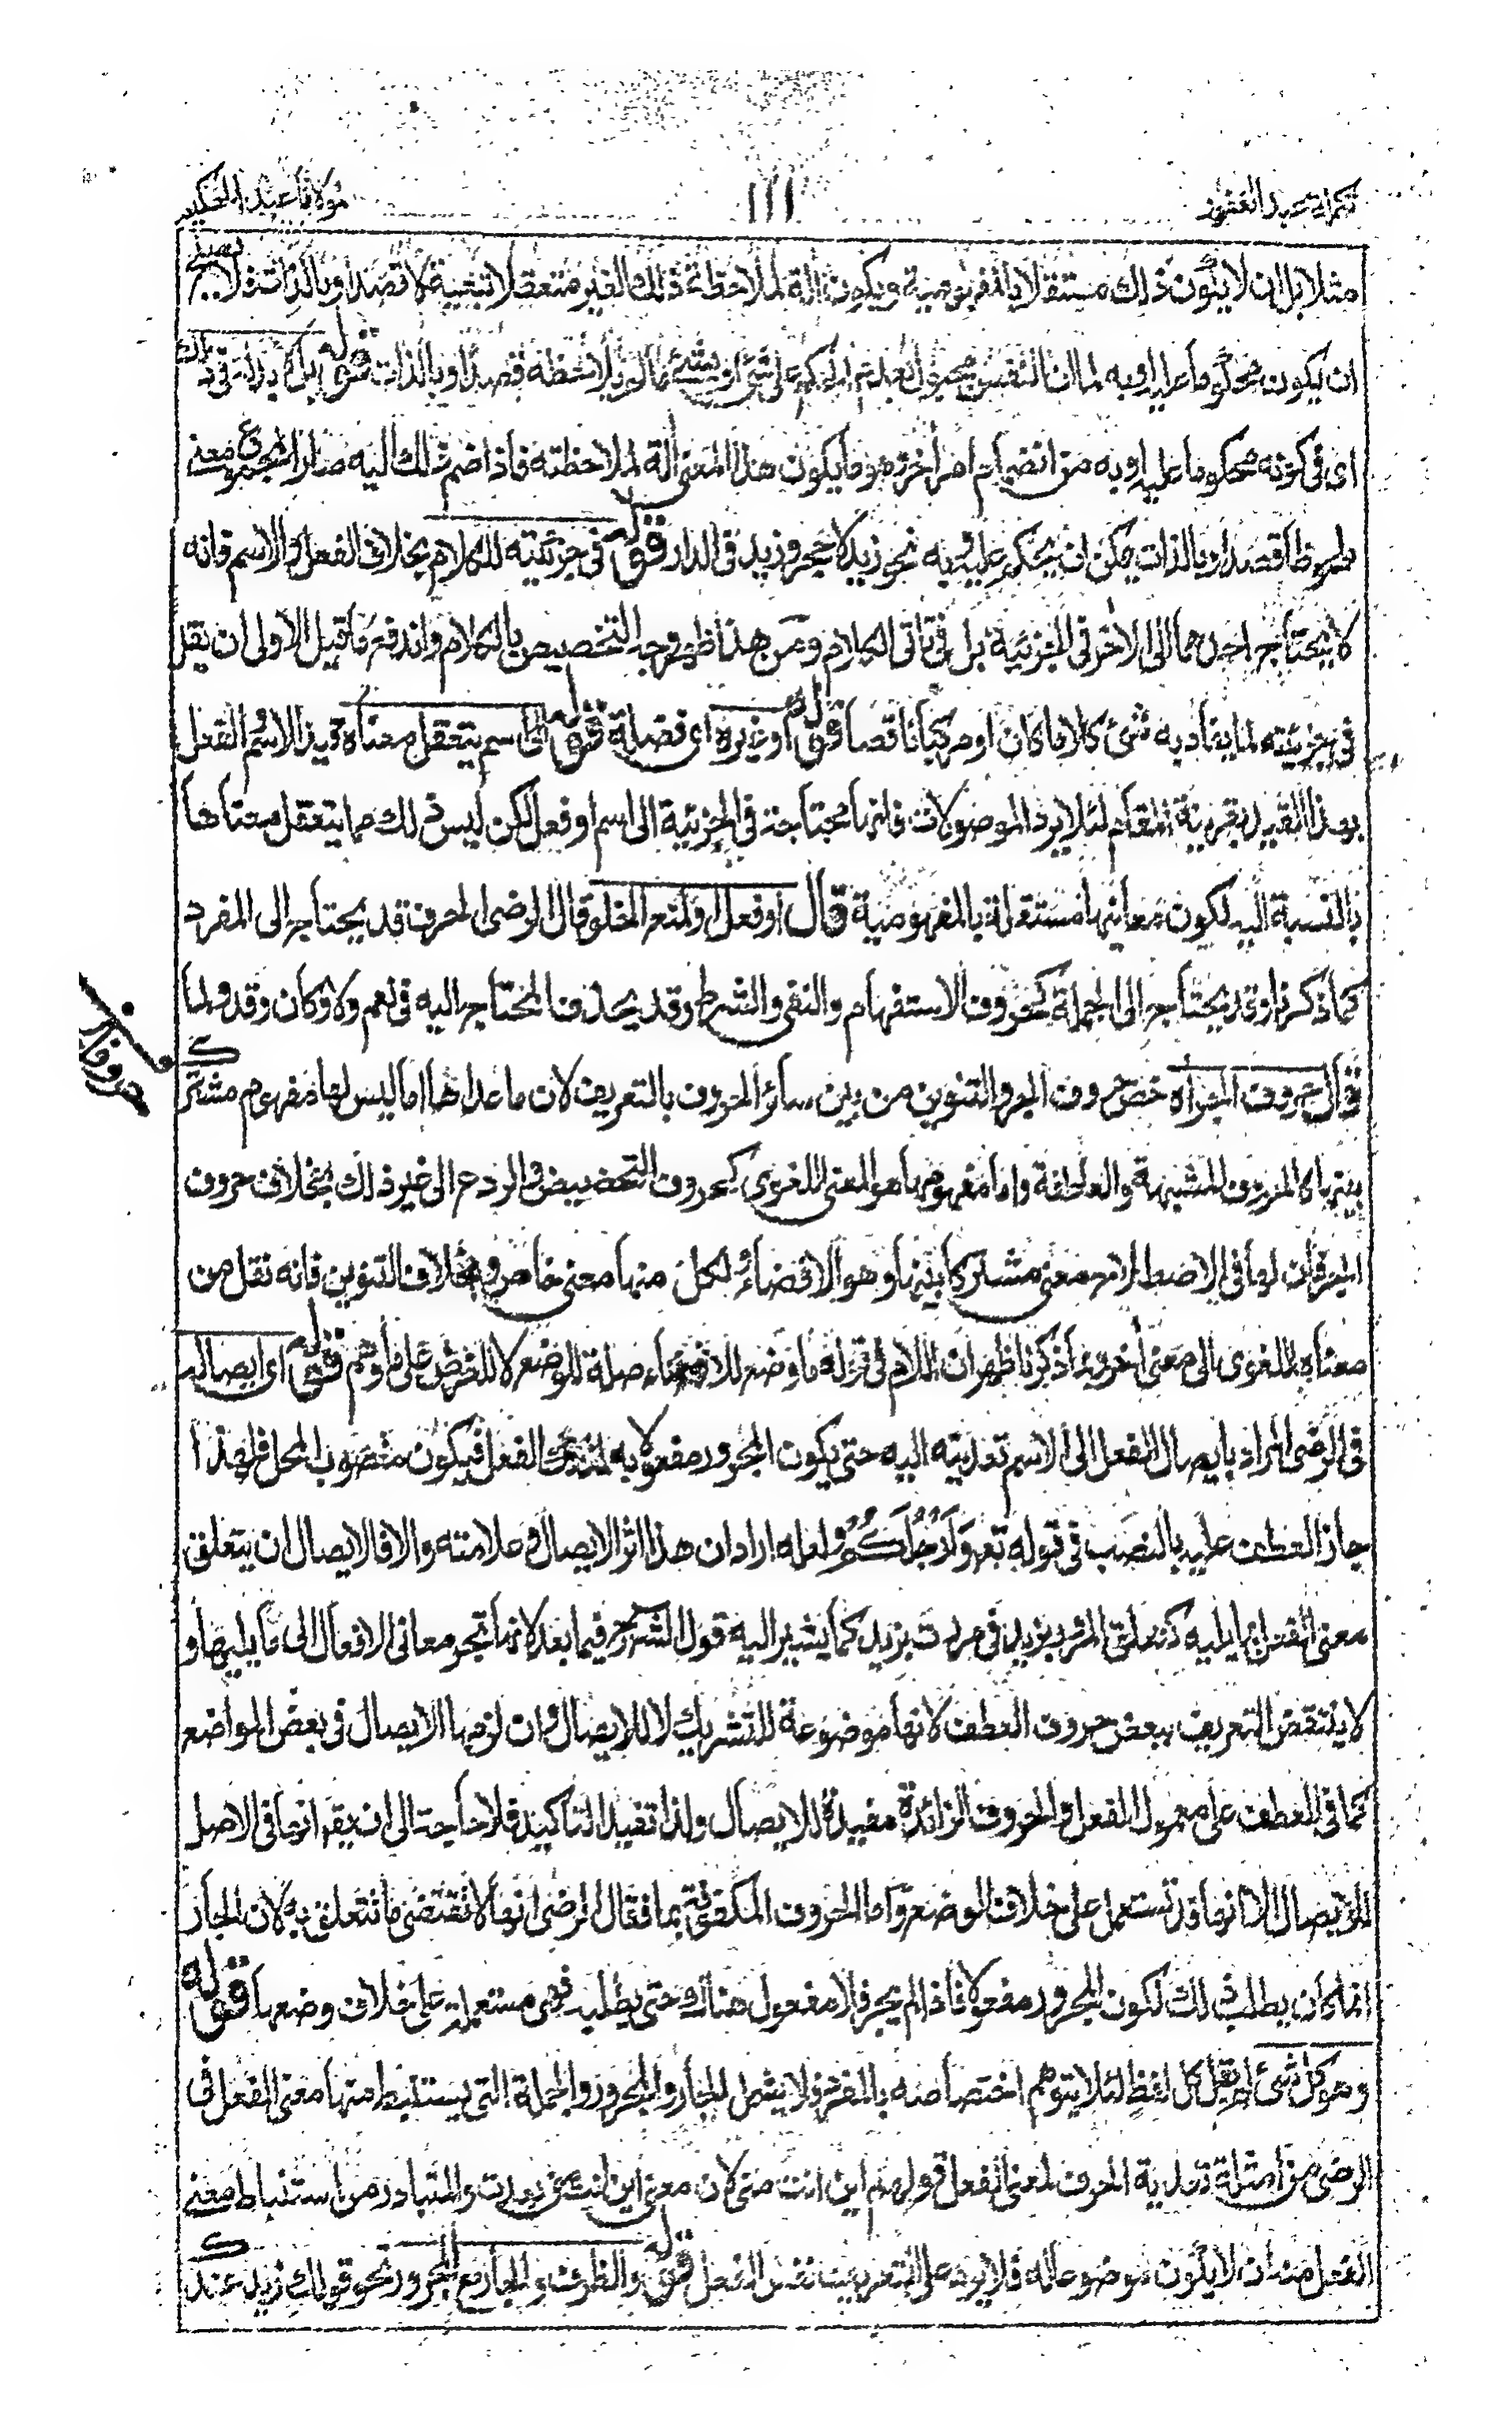 تكملة عبد الغفور
١١١
مولانا عبد الحكيم
مثلا بل ان لا يكون ذلك مستقلا بالمفهومية ويكون الة لملاحظة ذلك الغير ومتعقلا بتبعيته لا قصدا وبالذات فلا يصلح
ان يكون محكوما عليه او به لما ان النفس مجبولة الحكم على شئ او بشئ ما لم يلاحظه قصدا وبالذات قوله بل لا بد له في ذلك
اى فى كونه محكوما عليه او به من انضمام امر اخر هو ما يكون هذا المعنى الة لملاحظته فاذا ضم ذلك اليه صار المجموع معنى
ملحوظا قصدا وبالذات يمكن ان يحكم عليه وبه نحو زيد لا حجر وزيد فى الدار قوله فى جزئيته للكلام بخلاف الفعل والاسم فانه
لا يحتاج احدهما الى الاخر فى الجزئية بل فى تاتى الكلام ومن هذا ظهر وجه التخصيص بالكلام واندفع ما قيل الاولى ان يقل
فى جزئيته لما يفاد به شئ كلاما كان او مركبا ناقصا قوله او غيره اى فضلة قوله الى اسم يتعقل معناه قيد الاسم والفعل
بهذا القيد بقرينة المقام لئلا يرد الموصولات فانها محتاجة فى الجزئية الى اسم او فعل لكن ليس ذلك مما يتعقل معناها
بالنسبة اليه لكون معانيها مستقلة بالمفهومية قال او فعل او لمنع الخلو قال الرضى الحرف قد يحتاج الى المفرد
كما ذكرنا وقد يحتاج الى الجملة كحروف الاستفهام والنفى والشرط وقد يحذف المحتاج اليه فى نعم ولا وكان وقد ولما
قال حروف الجر اه خص حروف الجر والتنوين من بين سائر الحروف بالتعريف لان ما عداها اما ليس لها مفهوم مشترك
بينها كالحروف المشبهة والعاطفة واما مفهومها هو المعنى اللغوى كحروف التحضيض والردع الى غير ذلك بخلاف حروف
الجر فان لها فى الاصطلاح معنى مشتركا بينها وهو الافضاء ولكل منها معنى خاص وبخلاف التنوين فانه نقل من
معناه اللغوى الى معنى اخر وبما ذكرنا ظهر ان اللام فى قوله ما وضع للافضاء صلة للوضع لا للغرض على ما وهم قوله اى ايصاله
فى الرضى المراد بايصال الفعل الى الاسم تعديته اليه حتى يكون المجرور مفعولا به لذلك الفعل فيكون منصوب المحل فلهذا
جاز العطف عليه بالنصب فى قوله تعه وَاَرْجُلَكُمْ ولعله اراد ان هذا اثر الايصال وعلامته والا فالايصال ان يتعلق
معنى الفعل بما يليه كتعلق المرور بزيد فى مررت بزيد كما يشير اليه قول الشرح فيما بعد لانها تجر معانى الافعال الى ما يليها و
لا ينتقض التعريف ببعض حروف العطف لانها موضوعة للتشريك لا للايصال وان لزمها الايصال فى بعض المواضع
كما فى العطف على معمول الفعل والحروف الزائدة مفيدة للايصال ولذا تفيد التاكيد فلا حاجة الى ان يقه انها فى الاصل
للايصال الا انها قد تستعمل على خلاف الوضع واما الحروف المكفوفة بما فقال الرضى انها لا تقتضى ما تتعلق به لان الجار
انما كان يطلب ذلك لكون المجرور مفعولا فاذا لم يجر فلا مفعول هناك حتى يطلبه فهى مستعملة على خلاف وضعها قوله
وهو كل شئ لم يقل كل لفظ لئلا يتوهم اختصاصه بالمفرد ولا يشمل الجار والمجرور والجملة التى يستنبط منها معنى الفعل فى
الرضى من امثلة تعدية الحرف لمعنى الفعل قولهم اين انت منى لان معنى اين انت بعدت والمتبادر من استنباط معنى
الفعل منه ان لا يكون موضوعا له فلا يرد على التعريف نفس الفعل قوله والظرف والجار مع المجرور نحو قولك زيد عندك
حروف الجر